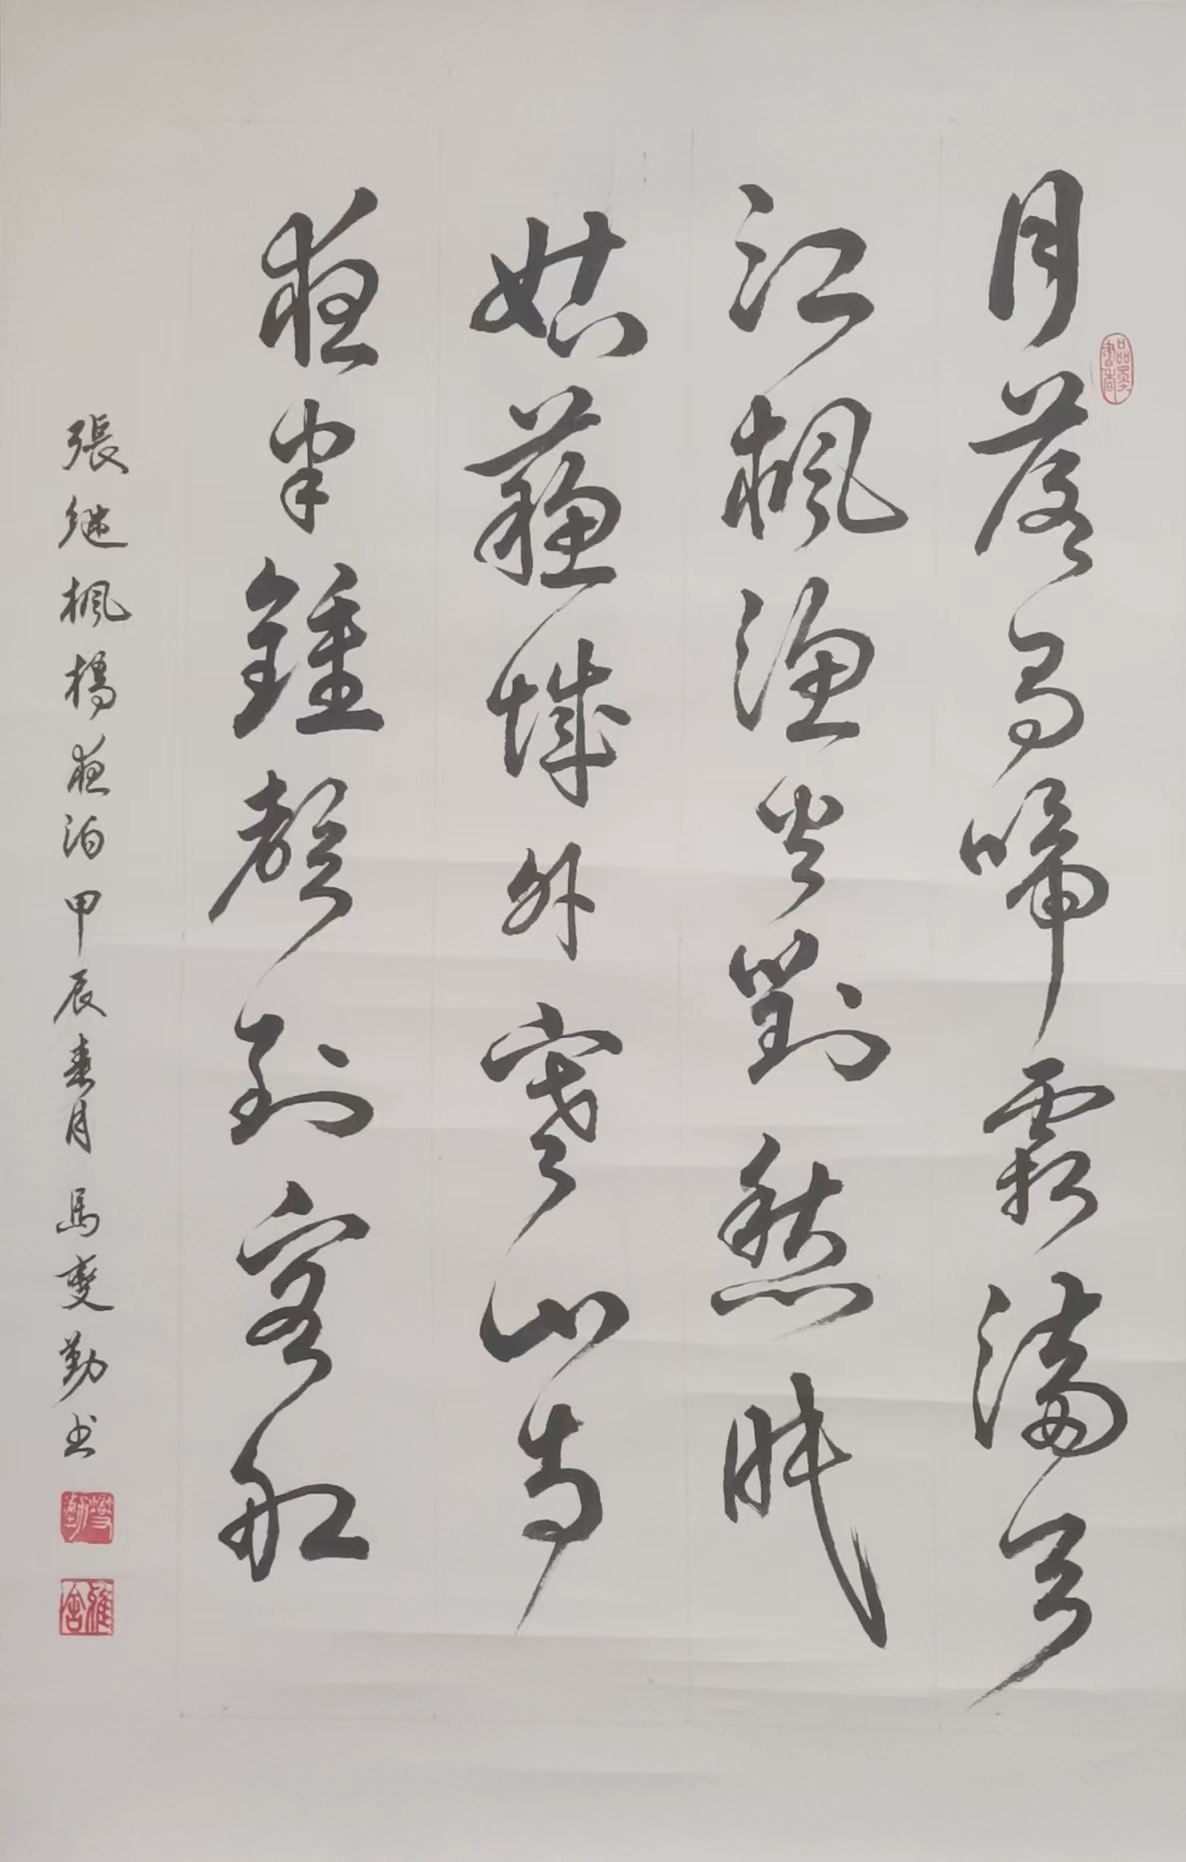 月落烏啼霜滿天
江楓漁火對愁眠
姑蘇城外寒山寺
夜半鍾聲到客船
張继楓橋夜泊甲辰春月馬雙勤书